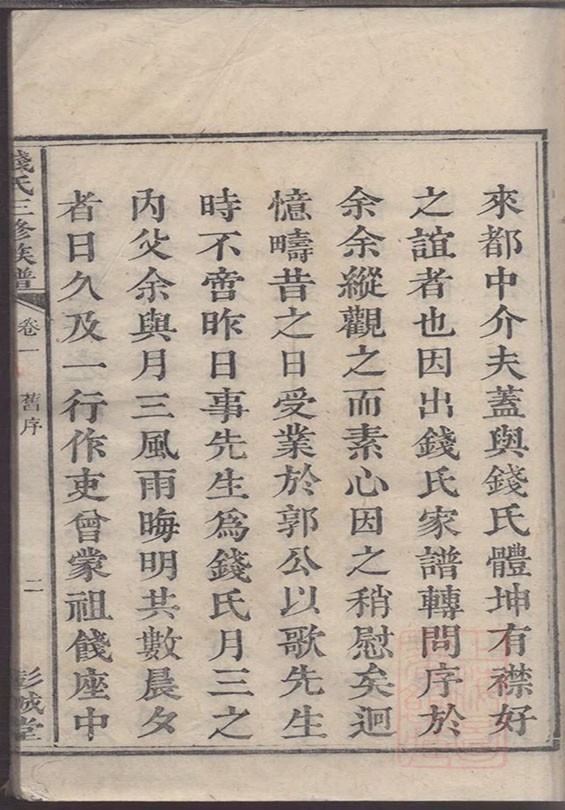 來都中介夫蓋與錢氏體坤有襟好
之誼者也因出錢氏家譜轉問序於
余余縱觀之而素心因之稍慰矣迴
憶疇昔之日受業於郭公以歌先生
時不啻昨日事先生為錢氏月三之
內父余與月三風雨晦明共數晨夕
者日久及一行作吏曾蒙祖餞座中
錢氏三修族譜
卷一
舊序
二
彭城堂